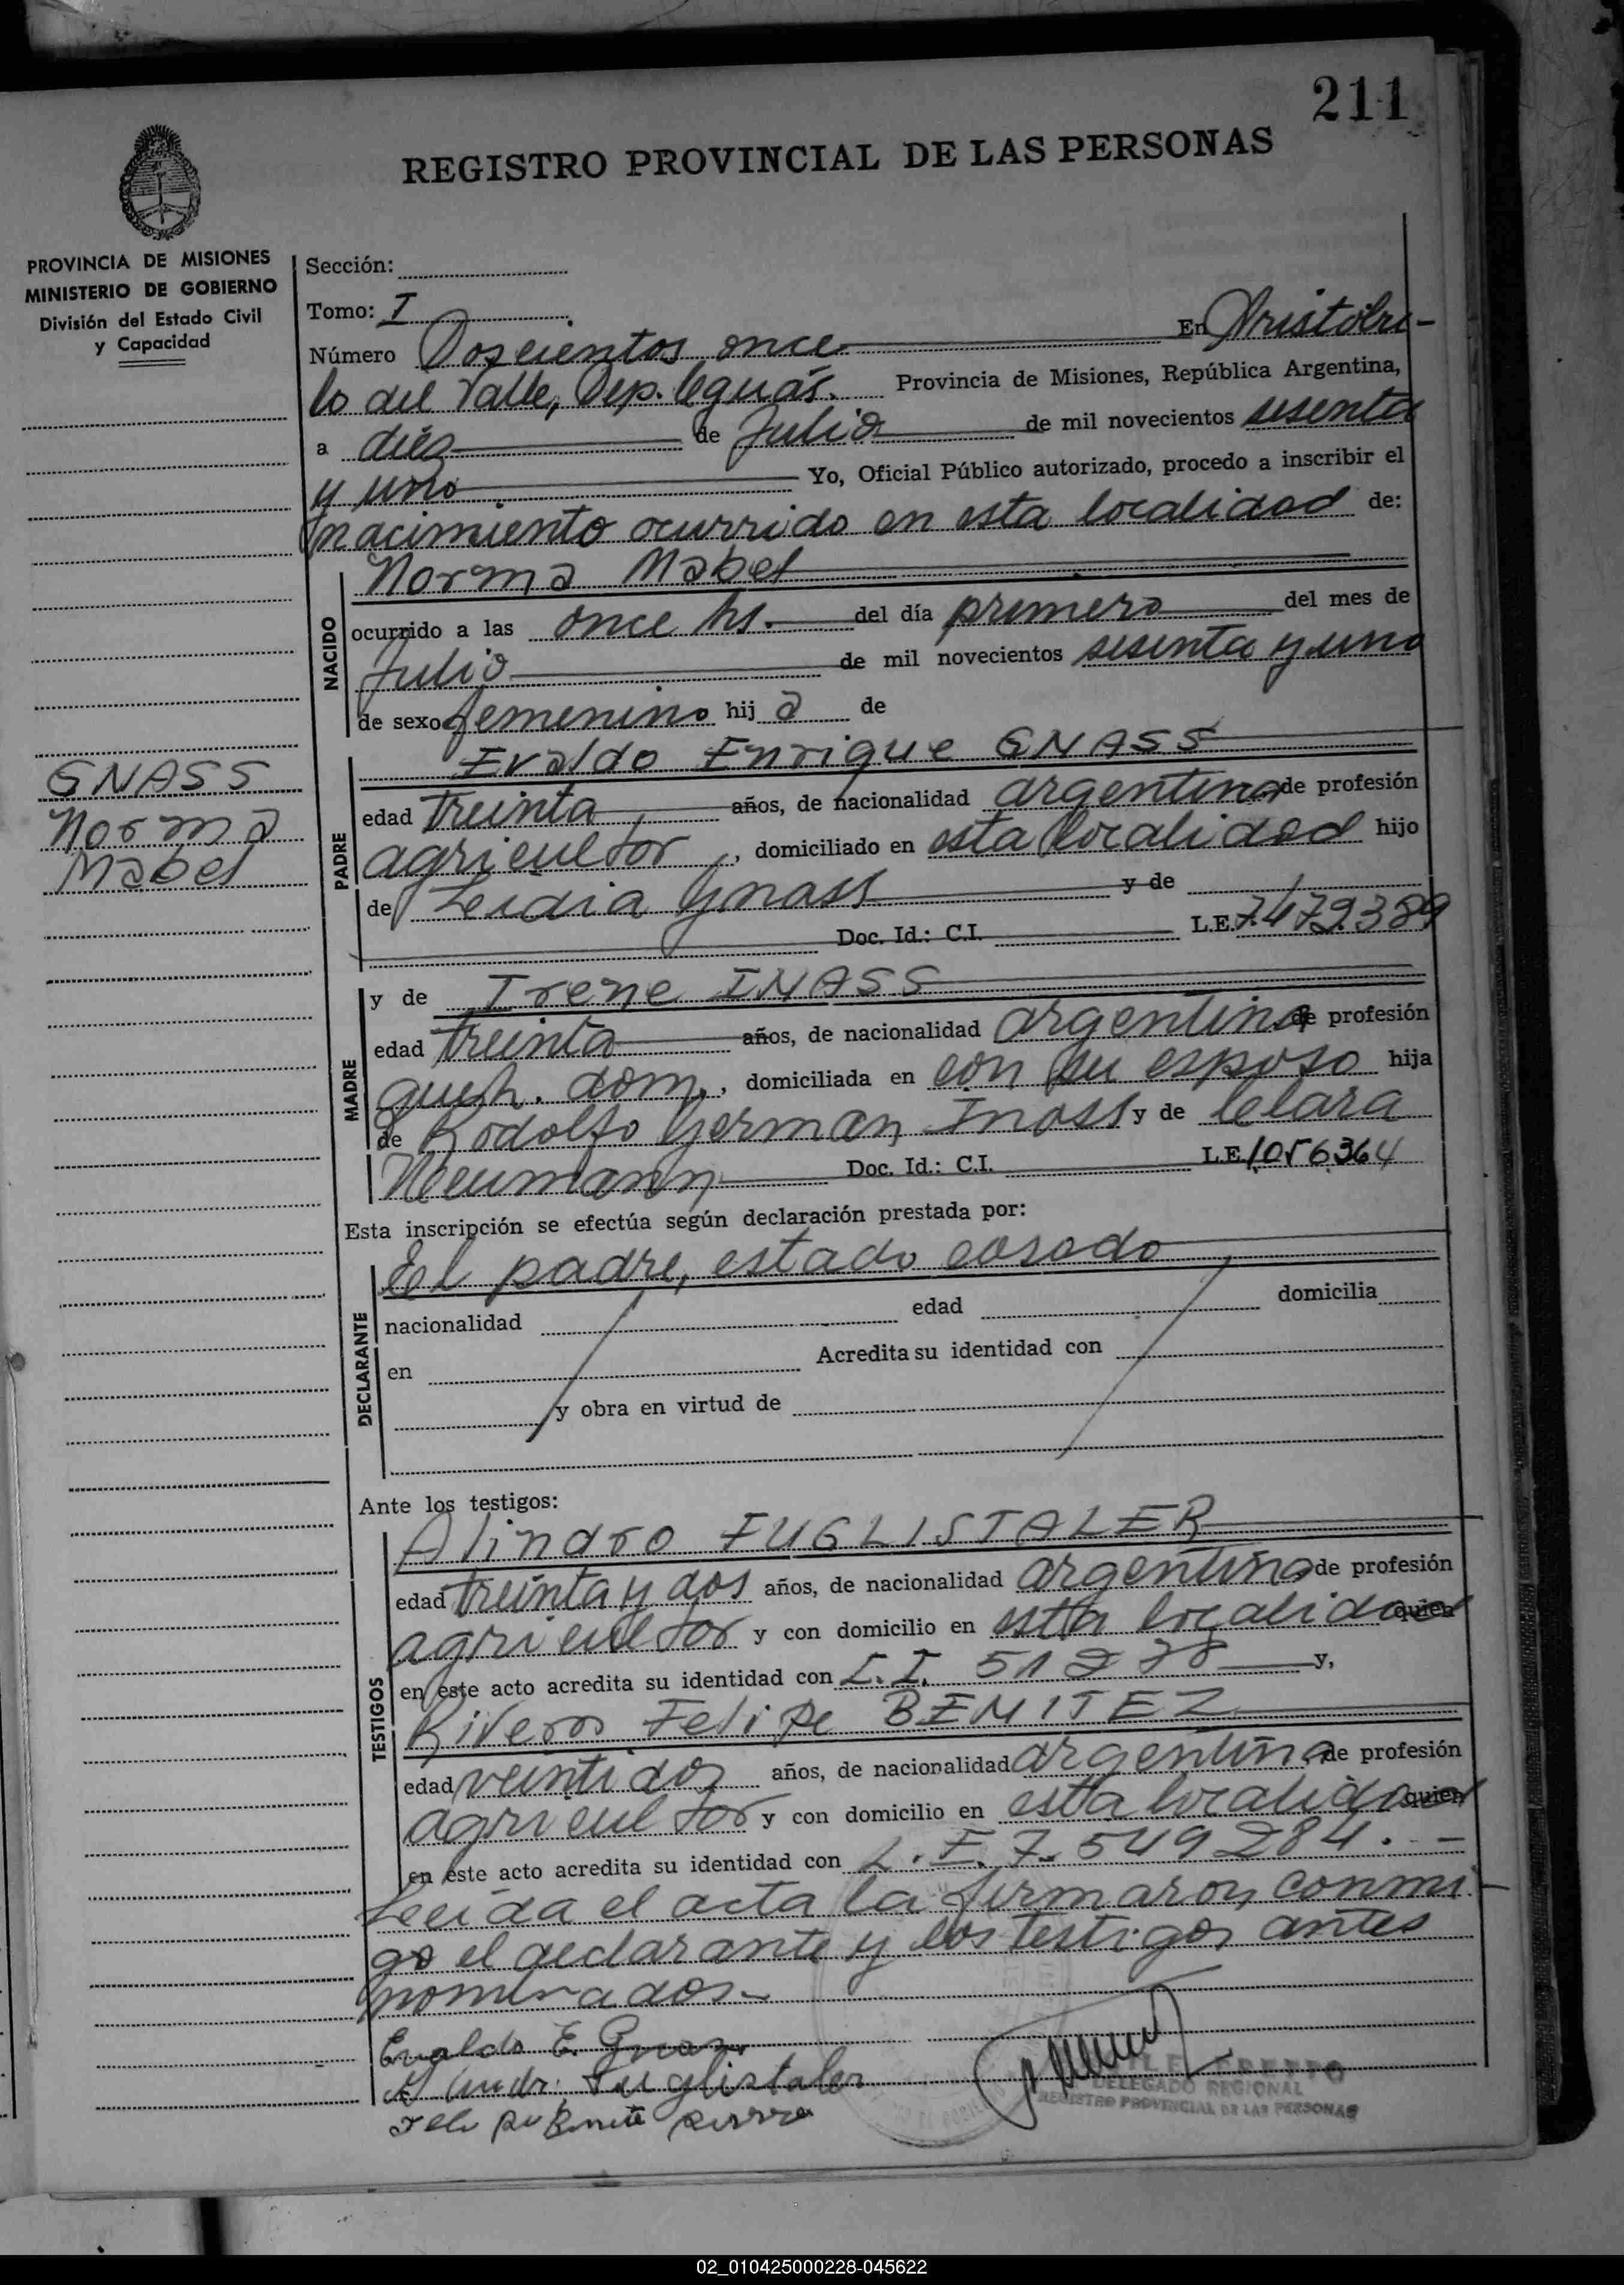 211
REGISTRO PROVINCIAL DE LAS PERSONAS
PROVINCIA DE MISIONES
MINISTERIO DE GOBIERNO
División del Estado Civil
y Capacidad
Sección:
Tomo: I
Número Doscientos once En Aristóbu-
lo del Valle, Dep. Cguás. Provincia de Misiones, República Argentina,
a diéz de Julio de mil novecientos sesenta
y uno Yo, Oficial Público autorizado, procedo a inscribir el
nacimiento ocurrido en esta localidad de:
NACIDO
Norma Mabel
ocurrido a las once hs. del día primero del mes de
Julio de mil novecientos sesenta y uno
de sexo femenino hij a de
GNASS
Norma
Mabel
PADRE
Evaldo Enrique GNASS
edad treinta años, de nacionalidad argentina de profesión
agricultor, domiciliado en esta localidad hijo
de Leidia Gnass y de
Doc. Id.: C.I. L.E. 7.479.389
MADRE
y de Irene INASS
edad treinta años, de nacionalidad argentina de profesión
queh. dom., domiciliada en con su esposo hija
de Rodolfo German Inass y de Clara
Neumann Doc. Id.: C.I. L.E. 1056364
Esta inscripción se efectúa según declaración prestada por:
DECLARANTE
El padre, estado casado
nacionalidad edad domicilia
en Acredita su identidad con
y obra en virtud de
Ante los testigos:
TESTIGOS
Alindro FUGLISTALER
edad treinta y dos años, de nacionalidad argentina de profesión
agricultor y con domicilio en esta localidad quien
en este acto acredita su identidad con C.I. 51278 y,
Riveros Felipe BENITEZ
edad veintidos años, de nacionalidad argentina de profesión
agricultor y con domicilio en esta localidad quien
en este acto acredita su identidad con L.E. 7.549284.-
Leída el acta la firmaron conmi-
go el declarante y los testigos antes
nombrados.-
Evaldo E. Gnass
Fuglistaler
DELEGADO REGIONAL
REGISTRO PROVINCIAL DE LAS PERSONAS
02_010425000228-045622